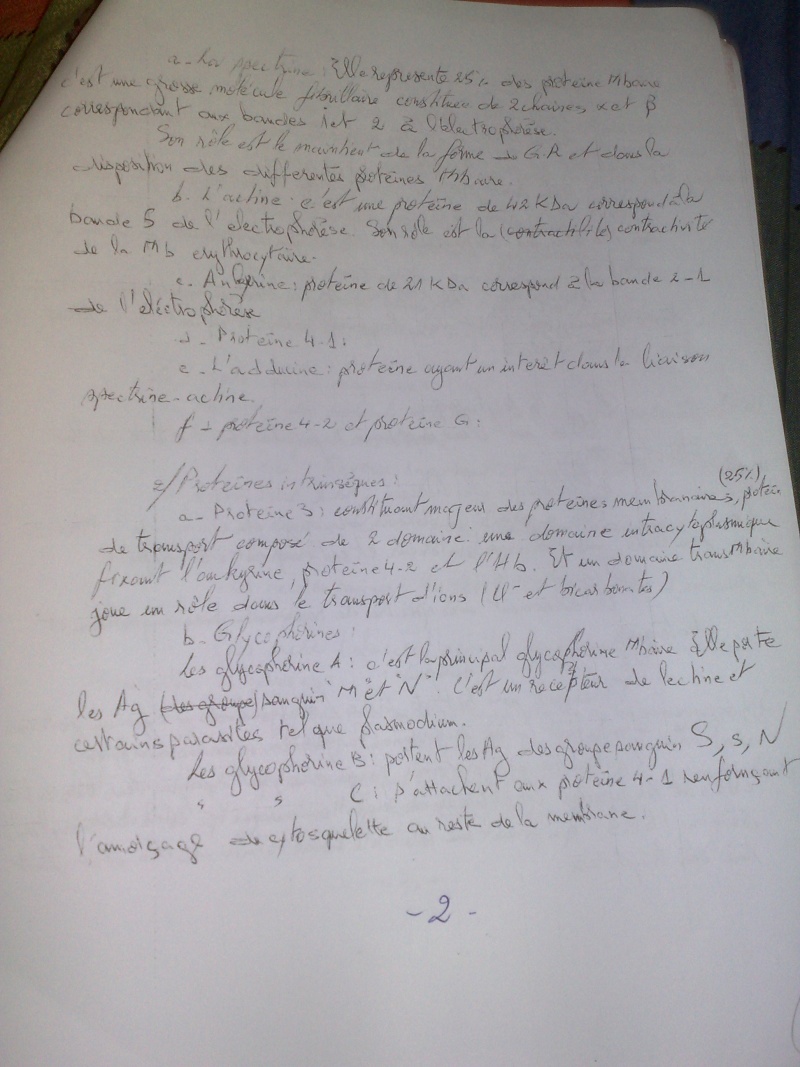 a - La spectrine : Elle represente 25% des proteine Mbaire
c'est une grosse molécule fibrillaire constituee de 2 chaines α et β
correspondant aux bandes 1 et 2 à l'électrophorèse.
Son rôle est le maintient de la forme de G.R et dans la
disposition des differentes proteines Mbaire.
b. L'actine : c'est une protéine de 42 KDa correspond à la
bande 5 de l'electrophorèse. Son rôle est la (contractilite) contractivité
de la Mb erythrocytaire.
c. Ankyrine : proteine de 21 KDa correspond à la bande 2-1
de l'eléctrophorèse
d - Proteine 4-1 :
e - L'adducine : proteine ayant un interèt dans la liaison
spectrine-actine.
f - proteine 4-2 et proteine G :
2/ Proteines intrinsèques :
a - Proteine 3 : constituant majeur des proteines membranaires, (25%)
de transport composé de 2 domaine : une domaine intracytoplasmique
fixant l'ankyrine, proteine 4-2 et l'Hb. Et un domaine transMbaire
joue un rôle dans le transport d'ions (Cl⁻ et bicarbonates)
b - Glycophorines :
Les glycophorine A : c'est la principal glycophorine Mbaire Elle porte
les Ag (des groupe) sanguin "M et N". C'est un recepteur de lectine et
certains parasites tel que plasmodium.
Les glycophorine B : portent les Ag des groupe sanguin S, s, N
" " C : s'attachent aux proteine 4-1 renforçant
l' de cytosquelette au reste de la membrane.
- 2 -